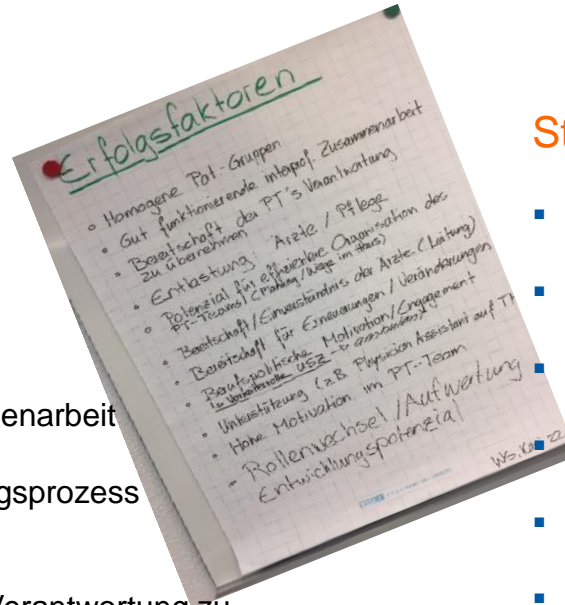 Erfolgsfaktoren
• Homogene Pat.-Gruppen
• Gut funktionierende interprof. Zusammenarbeit
• Bereitschaft der PT's Verantwortung
zu übernehmen
• Entlastung: Ärzte / Pflege
• Potenzial für effizientere Organisation des
PT-Teams! (Planung/Wege im Haus)
• Bereitschaft/Einverständnis der Ärzte. (Leitung)
• Bereitschaft für Erneuerungen / Veränderungen
• Berufspolitische Motivation/Engagement
USZ
• Unterstützung (z.B. Physician Assistant auf Th
• Hohe Motivation im PT-Team
• Rollenwechsel /Aufwertung
Entwicklungspotenzial
22
enarbeit
gsprozess
Verantwortung zu
St